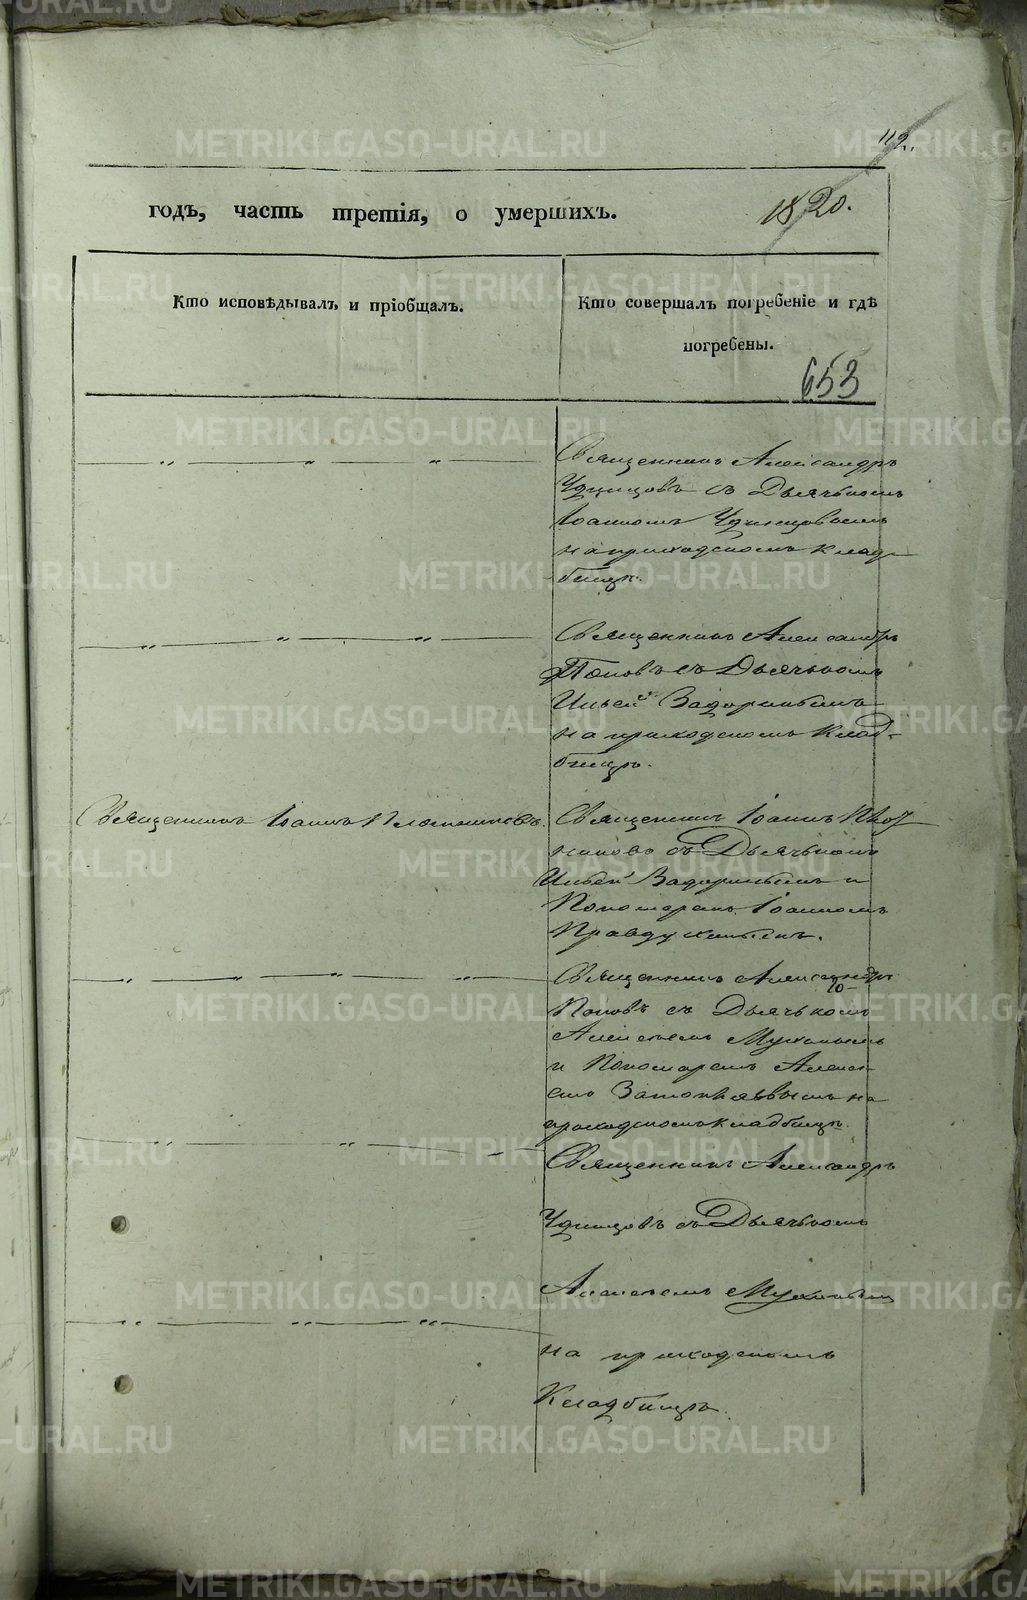 112.
годъ, часть третія, о умершихъ.
1820.
Кто исповѣдывалъ и пріобщалъ.
Кто совершалъ погребеніе и гдѣ
погребены.
653
Священникъ Александръ
съ Дьячькомъ
Іоанномъ
на приходскомъ клад-
бищѣ.
Священникъ Александръ
Поповъ съ Дьячькомъ
Ильей Задоринымъ
на приходскомъ Клад-
бищѣ.
Священникъ Іоаннъ Плотниковъ.
Священникъ Іоаннъ Плот
никовъ съ Дьячькомъ
Ильей Задоринымъ и
Пономаремъ Іоанномъ
Правдухинымъ.
Священникъ Александръ
Поповъ съ Дьячькомъ
Алексѣемъ Мухинымъ
и Пономаремъ Алексѣ-
емъ на
приходскомъ кладбищѣ.
Священникъ Александръ
съ Дьячькомъ
Алексѣемъ Мухинымъ
на приходскомъ
Кладбищѣ.
METRIKI.GASO-URAL.RU